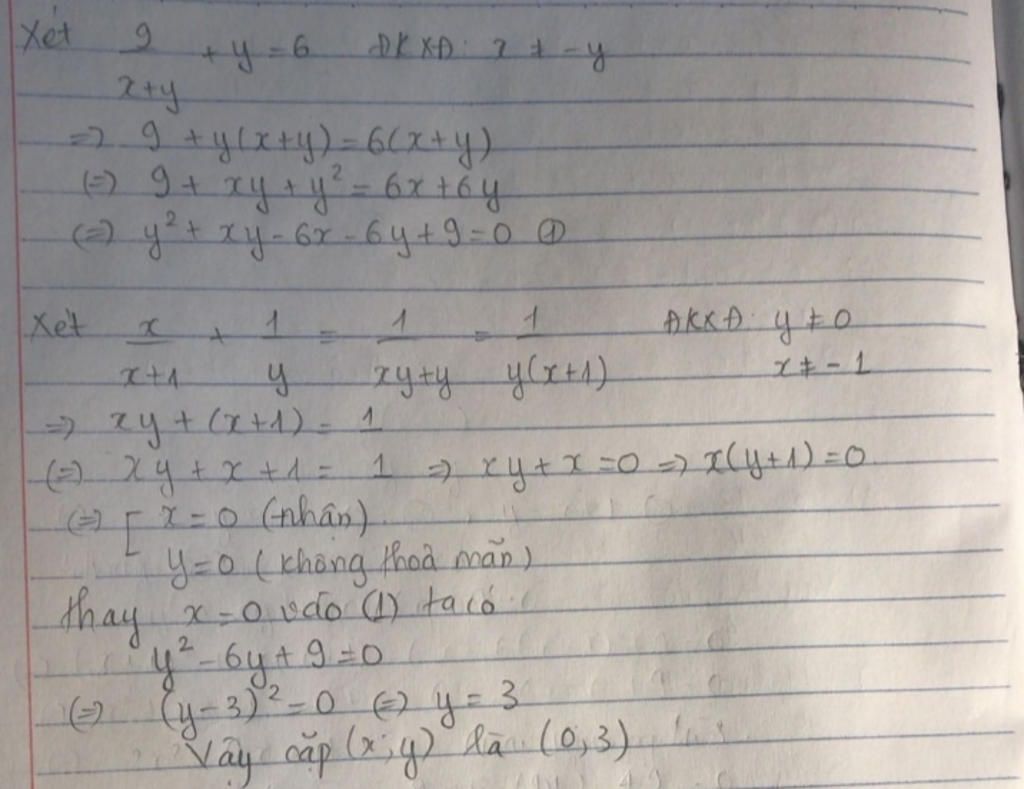 Xét 9/(x+y) + y = 6 ĐKXĐ: x ≠ -y
=> 9 + y(x+y) = 6(x+y)
(=) 9 + xy + y² = 6x + 6y
(=) y² + xy - 6x - 6y + 9 = 0 ①
Xét x/(x+1) + 1/y = 1/(xy+y) = 1/(y(x+1)) ĐKXĐ: y ≠ 0
x ≠ -1
=> xy + (x+1) = 1
(=) xy + x + 1 = 1 => xy + x = 0 => x(y+1) = 0
(=) [ x = 0 (nhận)
y = 0 (không thoả mãn)
thay x = 0 vào (1) ta có
y² - 6y + 9 = 0
(=) (y-3)² = 0 (=) y = 3
Vậy cặp (x;y) là (0;3)